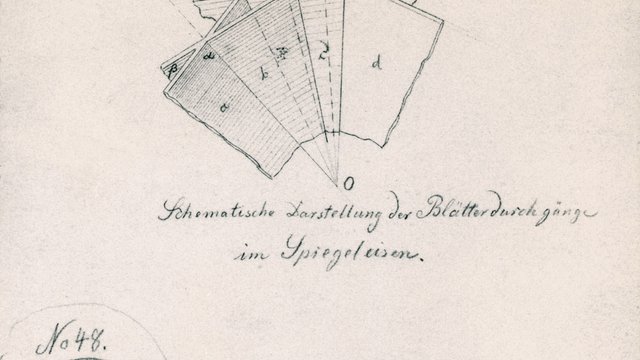 β α b d
a
O
Schematische Darstellung der Blätterdurchgänge
im Spiegeleisen.
No 48.